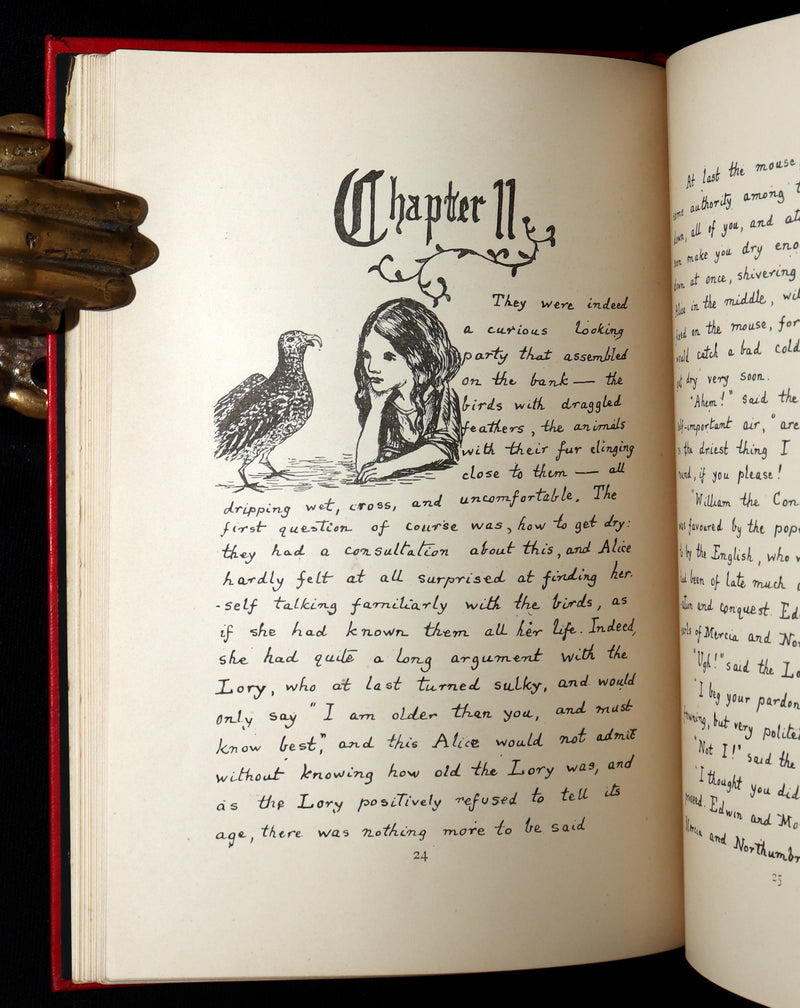 Chapter II
They were indeed
a curious looking
party that assembled
on the bank — the
birds with draggled
feathers, the animals
with their fur clinging
close to them — all
dripping wet, cross, and uncomfortable. The
first question of course was, how to get dry:
they had a consultation about this, and Alice
hardly felt at all surprised at finding her-
-self talking familiarly with the birds, as
if she had known them all her life. Indeed,
she had quite a long argument with the
Lory, who at last turned sulky, and would
only say "I am older than you, and must
know best", and this Alice would not admit
without knowing how old the Lory was, and
as the Lory positively refused to tell its
age, there was nothing more to be said
24
At last the mouse,
authority among
down, all of you, and at
make you dry eno
at once, shivering
Alice in the middle, wi
on the mouse, for
catch a bad cold
dry very soon.
"Ahem!" said the
self-important air, "are
is the driest thing I
round, if you please!
"William the Con
was favoured by the pop
by the English, who w
had been of late much
and conquest. Ed
earls of Mercia and No
"Ugh!" said the Lo
"I beg your pardon
frowning, but very polite
"Not I!" said the
"I thought you did
proceed. Edwin and Mo
Mercia and Northumbr
25